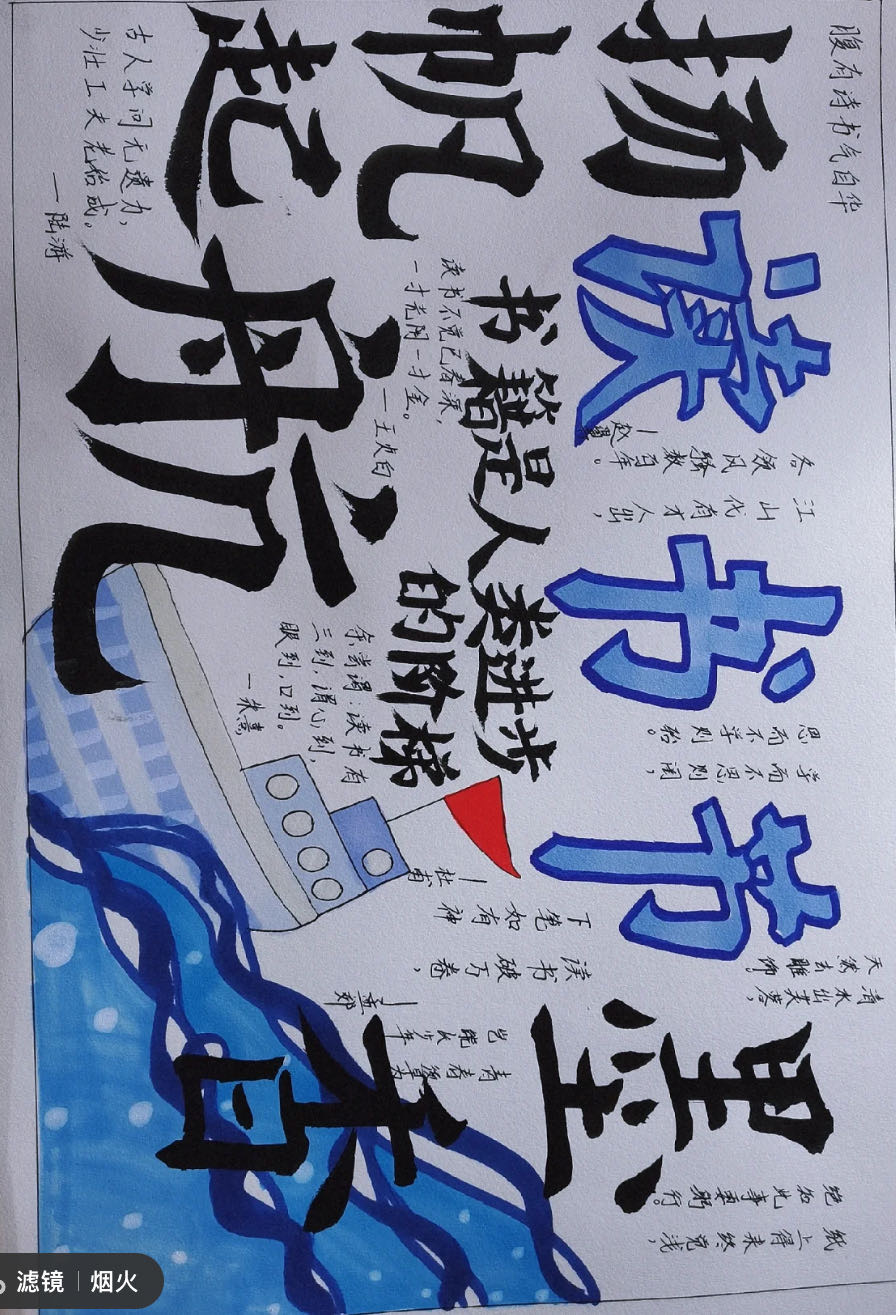 腹有诗书气自华
读书节
扬帆起航
墨香
江山代有才人出，
各领风骚数百年。
—赵翼
学而不思则罔，
思而不学则殆。
清水出芙蓉，
天然去雕饰。
纸上得来终觉浅，
绝知此事要躬行。
书籍是人类进步
的阶梯
读书破万卷，
下笔如有神
—杜甫
读书不觉已春深，
一寸光阴一寸金。
—王贞白
余尝谓：读书有
三到，谓心到，
眼到，口到。
—朱熹
青春须早为
岂能长少年
—孟郊
古人学问无遗力，
少壮工夫老始成。
—陆游
滤镜 | 烟火